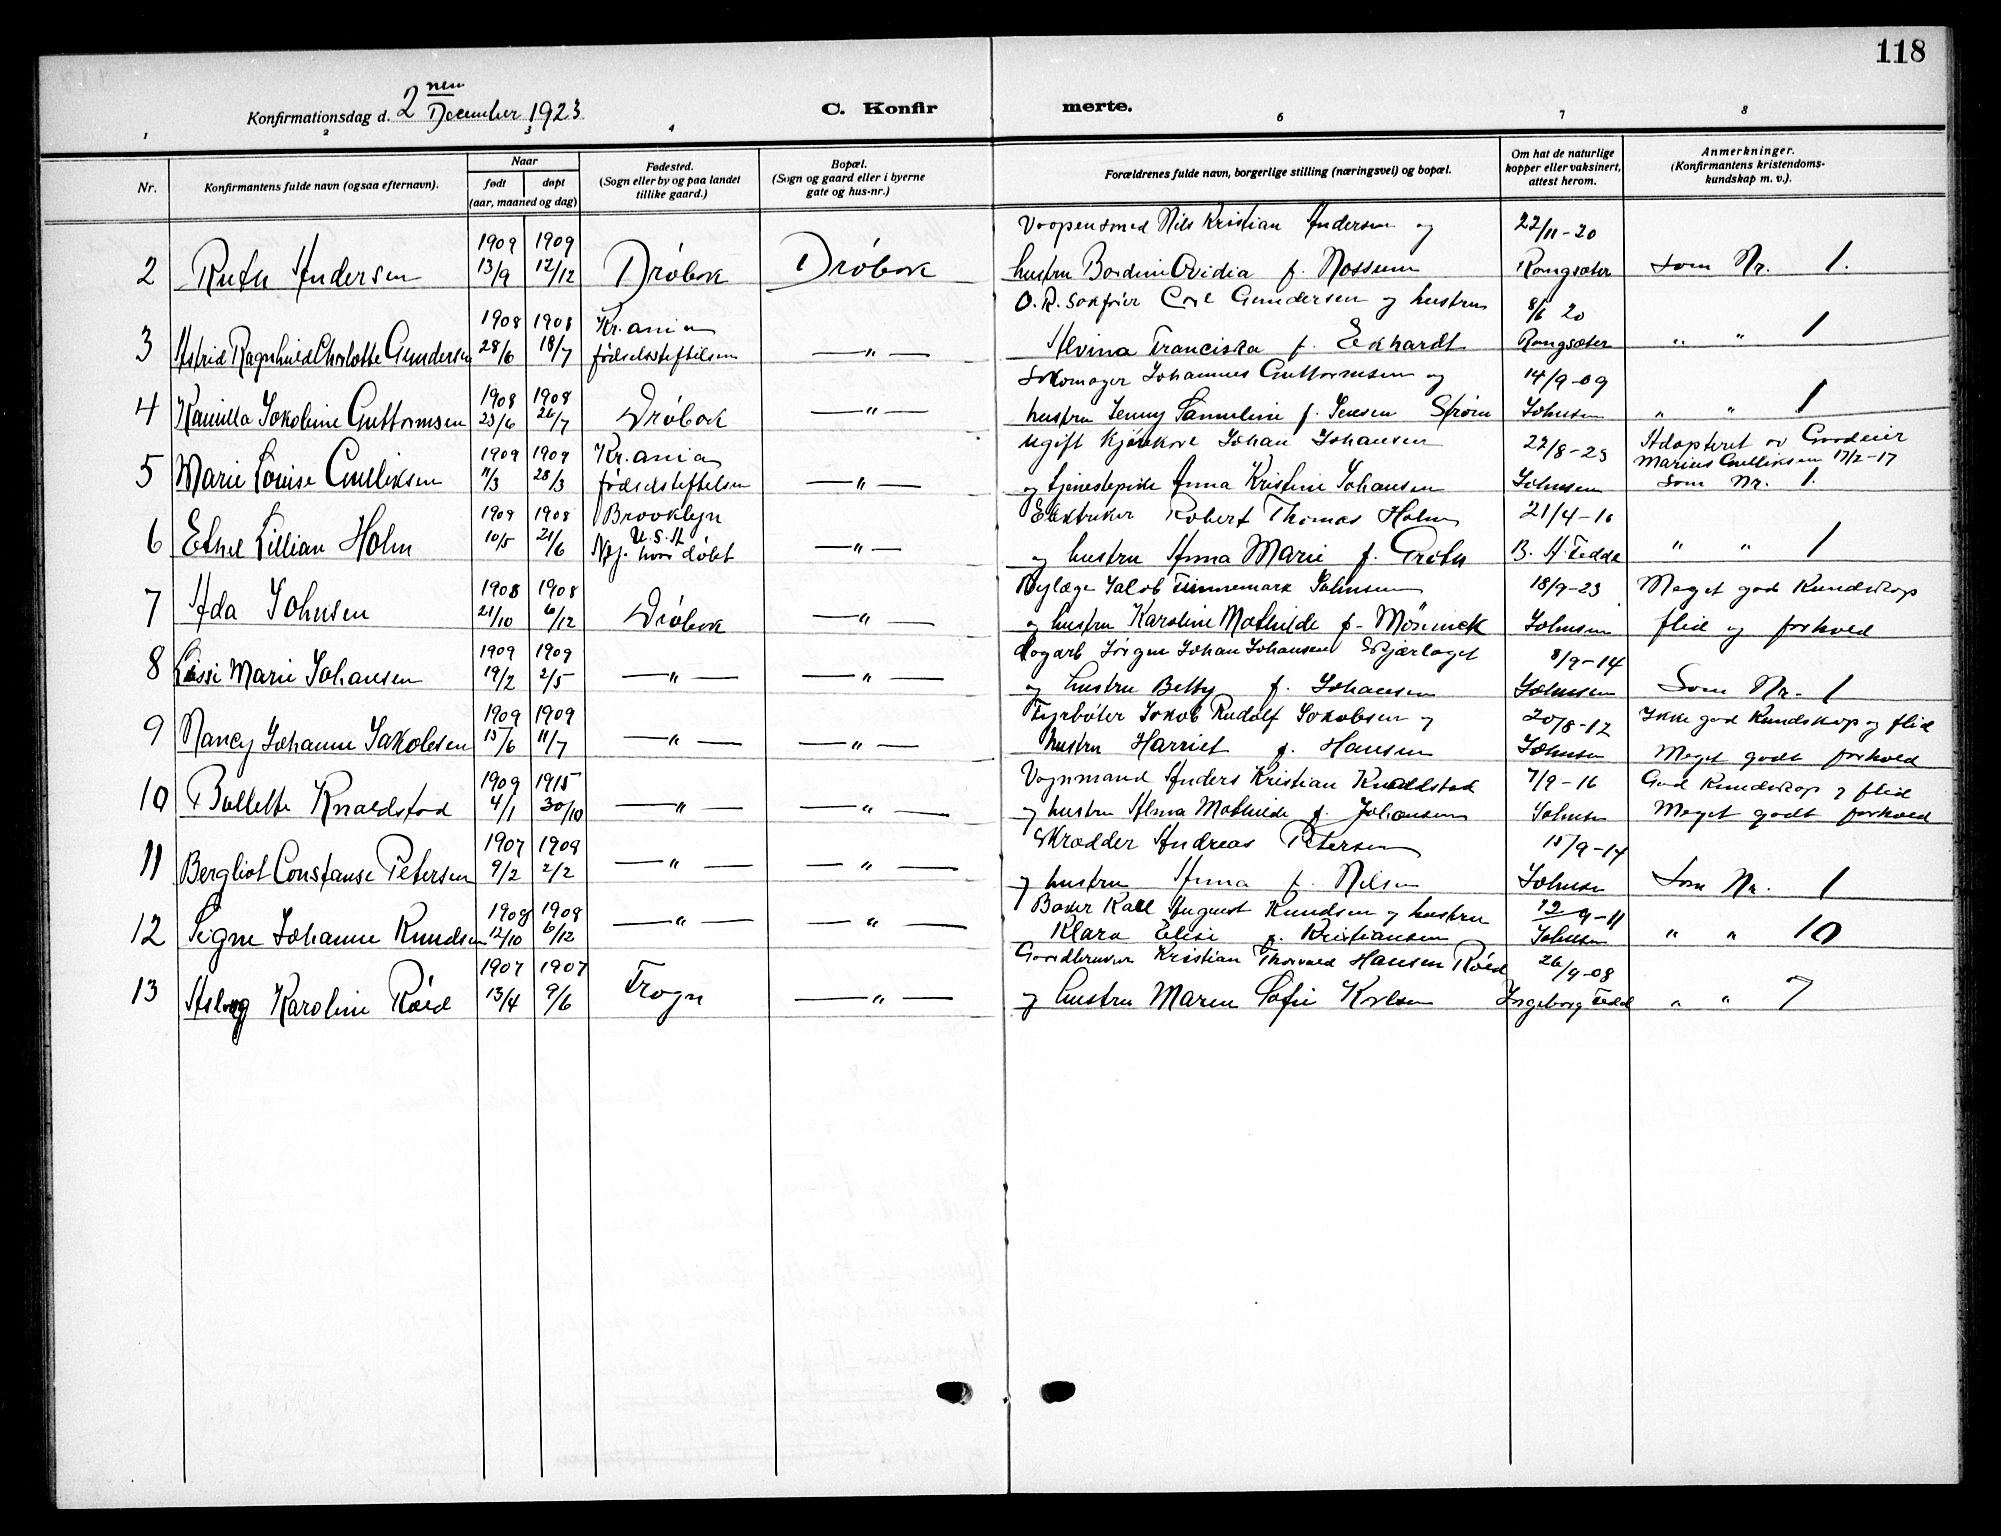 118
Konfirmationsdag d. 2nen December 1923
C. Konfirmerte.
1 2 3 4 6 7 8
Nr.
Konfirmantens fulde navn (ogsaa efternavn).
Naar
født døpt
(aar, maaned og dag)
Fødested.
(Sogn eller by og paa landet
tillike gaard.)
Bopæl.
(Sogn og gaard eller i byerne
gate og hus-nr.)
Forældrenes fulde navn, borgerlige stilling (næringsvei) og bopæl.
Om hat de naturlige
kopper eller vaksinert,
attest herom.
Anmerkninger.
(Konfirmantens kristendoms-
kundskap m. v.).
1909 1909 Nils Kristian Andersen og 22/11-20
2 Ruth Andersen 13/9 12/12 Drøbak Drøbak hustru Ovidia f. Rongsæter Som Nr. 1.
1908 1908 Kr.ania Gundersen og hustru 8/6 20
3 Astrid Ragnhild Charlotte Gundersen 28/6 18/7 fødselsstiftelsen —"— Alvina Franciska f. Eckhardt Rongsæter " " 1
1908 1908 Skomager Johannes Guttormsen og 14/9-09
4 Kamilla Jakobine Guttormsen 23/6 26/7 Drøbak —"— hustru Jenny f. Jensen Strøm Johnsen " " 1
1909 1909 Kr.ania ugift Johan Johansen 22/8-23 Adopteret av Gaardeier
Marius Gulliksen 17/2-17
5 Marie Louise Gulliksen 11/3 28/3 fødselsstiftelsen —"— og tjenestepike Anna Kristine Johansen Johnsen Som Nr. 1.
1908 1908 Brooklyn Robert Thomas Holm 21/4-16
U.S.A.
6 Ethel Lillian Holm 10/5 21/6 hvor døbt —"— og hustru Anna Marie f. B. A. Fedde " " 1
1908 1908 Bylæge Jalob Finnemark Johnsen 18/9-23 Meget god Kundskap
7 Ada Johnsen 21/10 6/12 Drøbak —"— og hustru Karoline Mathilde f. Johnsen flid og forhold
1909 1909 Jørgen Johan Johansen 8/9-14
8 Lissi Marie Johansen 19/2 2/5 —"— —"— og hustru Betty f. Johansen Johnsen Som Nr. 1
1909 1909 Fyrbøter Jakob Rudolf Jakobsen og 20/8-12 Ikke god Kundskap og flid
9 Nancy Johanne Jakobsen 15/6 11/7 —"— —"— hustru Harriet f. Hansen Johnsen Meget godt forhold
1909 1915 Vognmand Anders Kristian Knaldstad 7/9-16 God Kundskap og flid
10 Bollette Knaldstad 4/1 30/10 —"— —"— og hustru Alma Mathilde f. Johansen Johnsen Meget godt forhold
1907 1908 Skrædder Andreas Petersen 15/9-14
11 Bergliot Constanse Petersen 9/2 2/2 —"— —"— og hustru Anna f. Nilsen Johnsen Som Nr. 1
1908 1908 Baker Karl August Knudsen og hustru 12/9-11
12 Signe Johanne Knudsen 12/10 6/12 —"— —"— Klara Elise f. Kristiansen Johnsen " " 10
1907 1907 Gaardbruker Kristian Thorvald Hansen Røed 26/9-08
13 Aslaug Karoline Røed 13/4 9/6 Frogn —"— og hustru Maren Sofie Karlsen Ingeborg Fedde " " 7